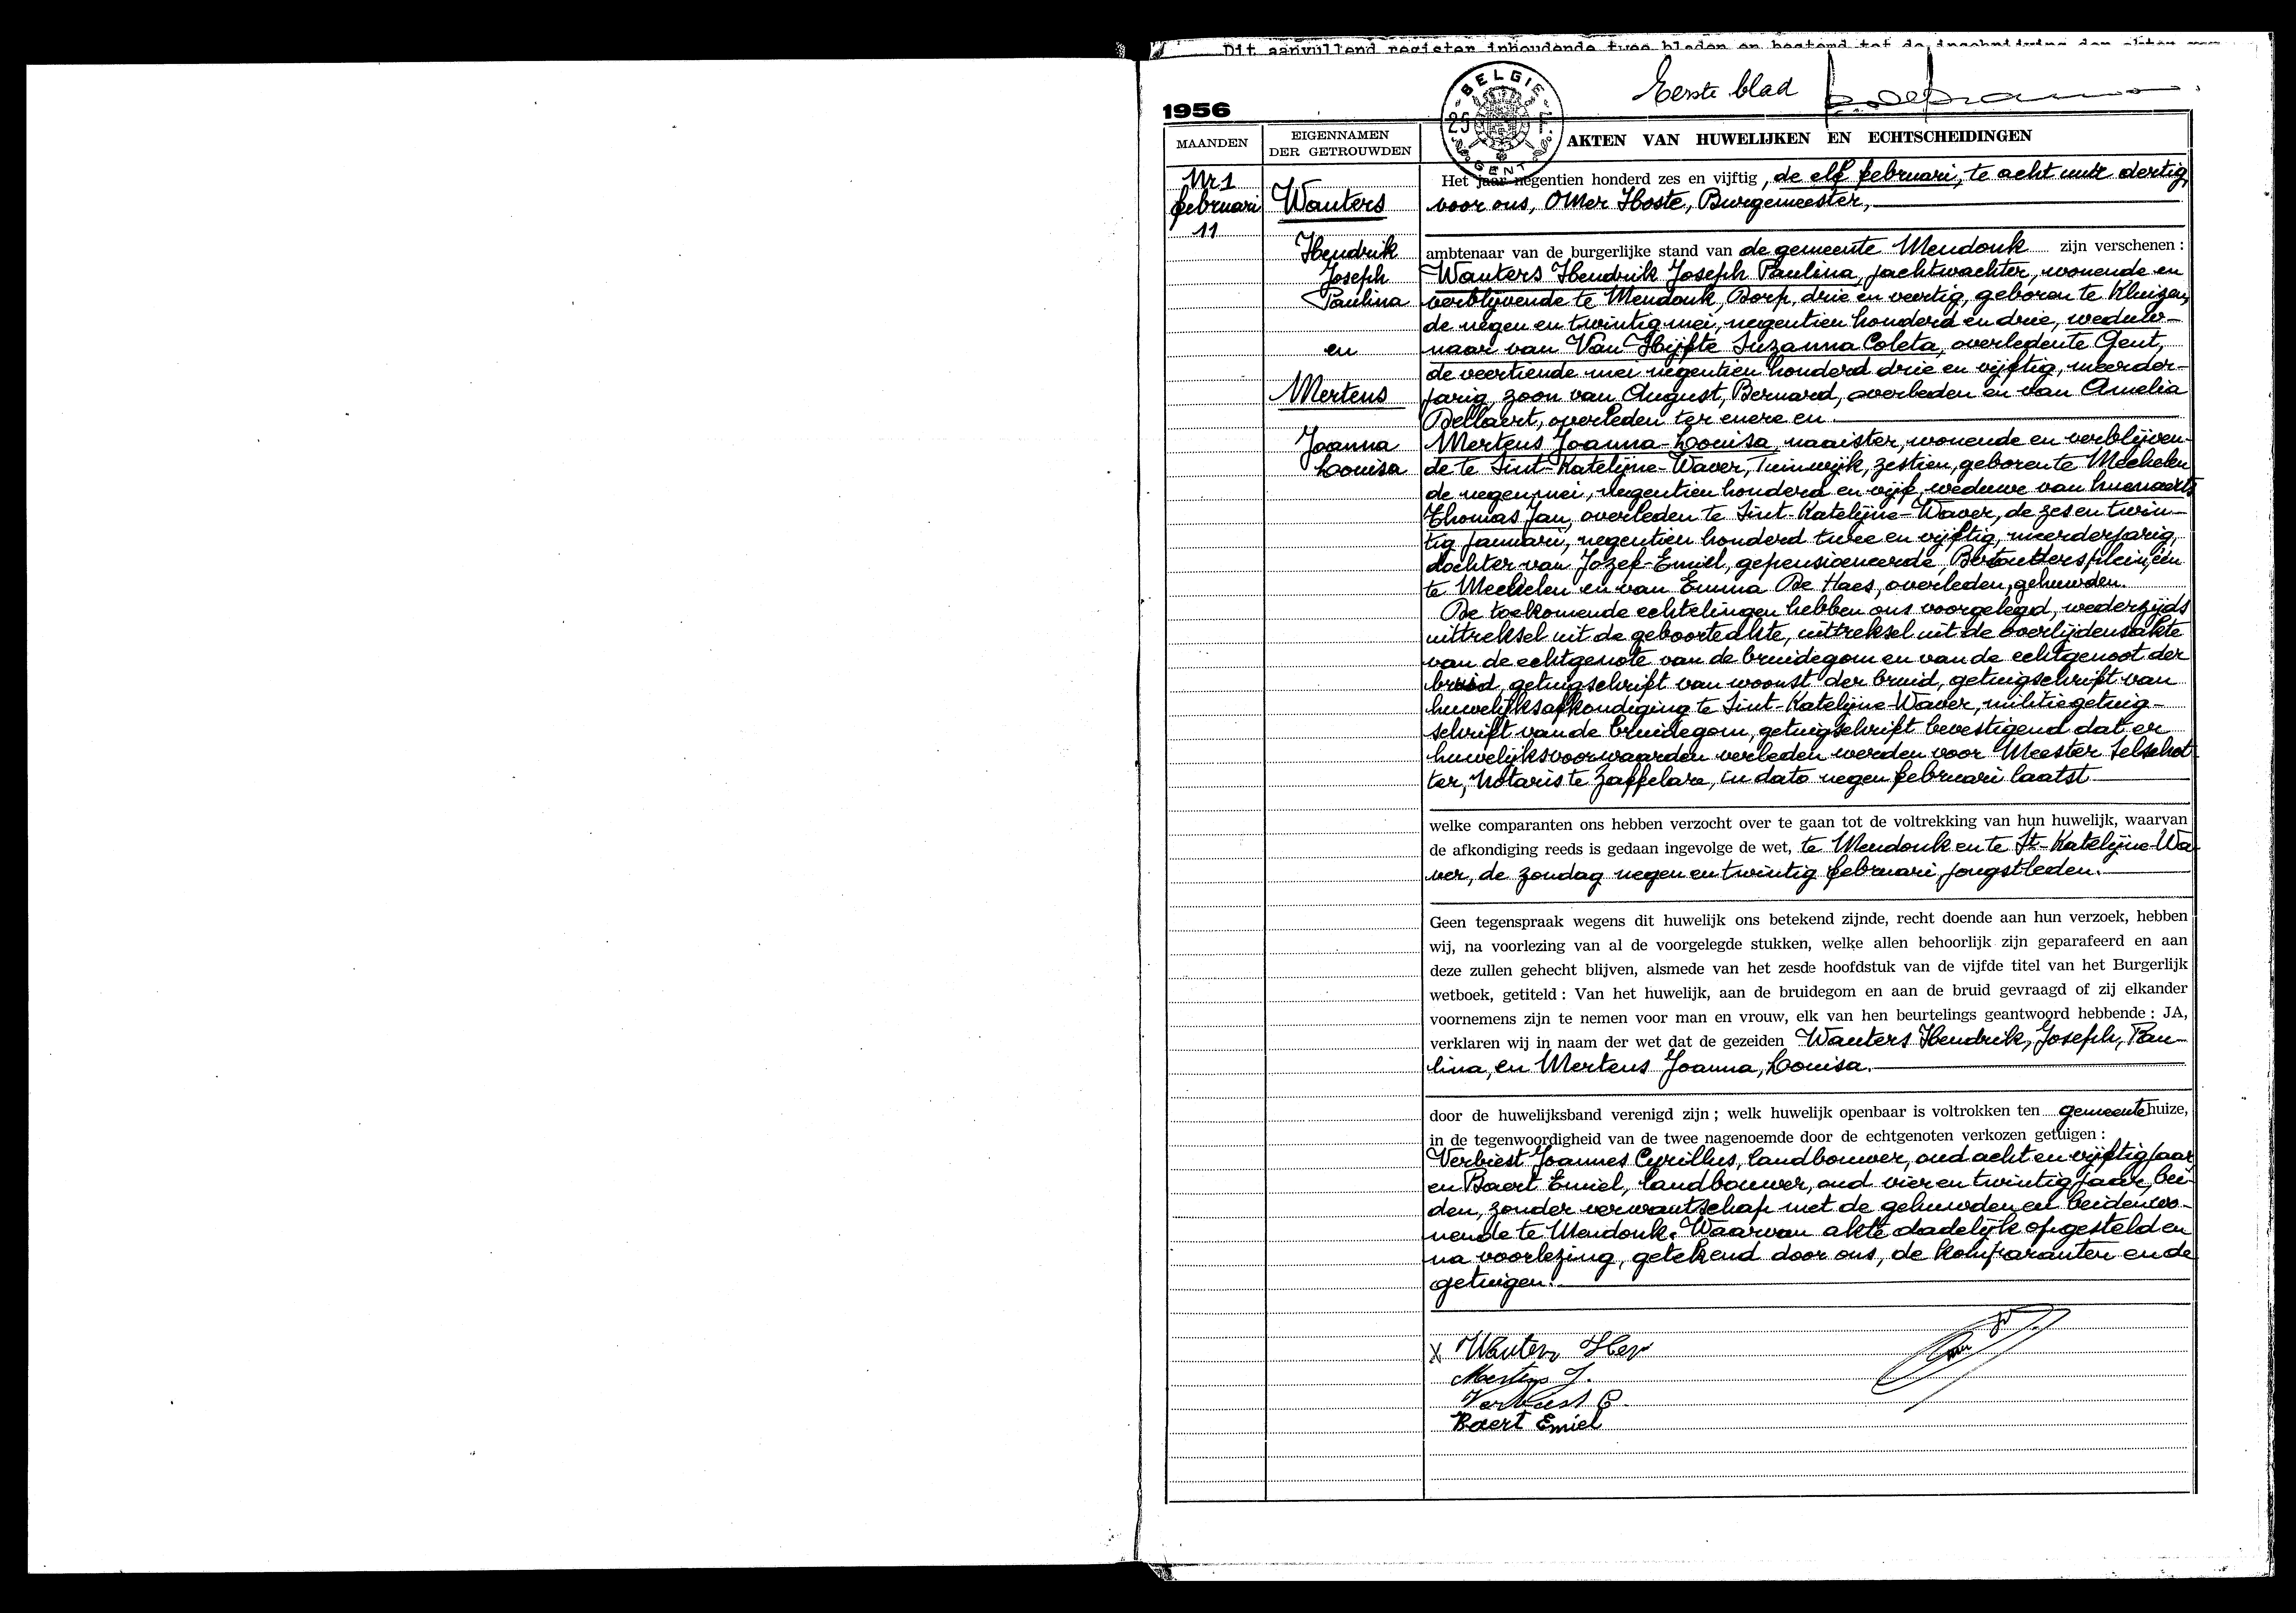 Dit aanvullend register inhoudende twee bladen en bestemd tot de inschrijving der akten van
Eerste blad
1956
BELGIE
25 F
GENT
MAANDEN
EIGENNAMEN
DER GETROUWDEN
AKTEN VAN HUWELIJKEN EN ECHTSCHEIDINGEN
Nr 1
februari
11
Wauters
Hendrik
Joseph
Paulina
en
Mertens
Joanna
Louisa
Het jaar negentien honderd zes en vijftig, de elf februari, te acht uur dertig,
voor ons, Omer Hoste, Burgemeester,
ambtenaar van de burgerlijke stand van de gemeente Mendonk zijn verschenen :
Wauters Hendrik Joseph Paulina, jachtwachter, wonende en
verblijvende te Mendonk, Dorp, drie en veertig, geboren te Kluizen,
de negen en twintig mei, negentien honderd en drie, weduw-
naar van Van Hijfte Suzanna Coleta, overleden te Gent,
de veertiende mei negentien honderd drie en vijftig, meerder-
jarig, zoon van August, Bernard, overleden en van Amelia
Dellaert, overleden ter enere en
Mertens Joanna-Louisa, naaister, wonende en verblijven-
de te Sint-Katelijne-Waver, Tuinwijk, zestien, geboren te Mechelen
de negen mei, negentien honderd en vijf, weduwe van Luenaerts
Thomas Jan, overleden te Sint-Katelijne-Waver, de zes en twin-
tig januari, negentien honderd twee en vijftig, meerderjarig,
dochter van Jozef-Emiel, gepensioneerde, Bertouttersplein, één
te Mechelen en van Emma De Haes, overleden, gehuwden.
De toekomende echtelingen hebben ons voorgelegd, wederzijds
uittreksel uit de geboorteakte, uittreksel uit de overlijdensakte
van de echtgenote van de bruidegom en van de echtgenoot der
bruid, getuigschrift van woonst der bruid, getuigschrift van
huwelijksafkondiging te Sint-Katelijne-Waver, militiegetuig-
schrift van de bruidegom, getuigschrift bevestigend dat er
huwelijksvoorwaarden verleden werden voor Meester Selschot
ter, Notaris te Zaffelare, in dato negen februari laatst
welke comparanten ons hebben verzocht over te gaan tot de voltrekking van hun huwelijk, waarvan
de afkondiging reeds is gedaan ingevolge de wet, te Mendonk en te St-Katelijne-Wa-
ver, de zondag negen en twintig februari jongstleden.
Geen tegenspraak wegens dit huwelijk ons betekend zijnde, recht doende aan hun verzoek, hebben
wij, na voorlezing van al de voorgelegde stukken, welke allen behoorlijk zijn geparafeerd en aan
deze zullen gehecht blijven, alsmede van het zesde hoofdstuk van de vijfde titel van het Burgerlijk
wetboek, getiteld : Van het huwelijk, aan de bruidegom en aan de bruid gevraagd of zij elkander
voornemens zijn te nemen voor man en vrouw, elk van hen beurtelings geantwoord hebbende : JA,
verklaren wij in naam der wet dat de gezeiden Wauters Hendrik, Joseph, Pau-
lina, en Mertens Joanna, Louisa.
door de huwelijksband verenigd zijn ; welk huwelijk openbaar is voltrokken ten gemeentehuize,
in de tegenwoordigheid van de twee nagenoemde door de echtgenoten verkozen getuigen :
Verbiest Joannes Cyrillus, landbouwer, oud acht en vijftig jaar,
en Baert Emiel, landbouwer, oud vier en twintig jaar, bei-
den, zonder verwantschap met de gehuwden en beiden wo-
nende te Mendonk. Waarvan akte dadelijk opgesteld en
na voorlezing, getekend door ons, de komparanten en de
getuigen.
X Wauters Hen
Mertens J.
Verbiest C.
Baert Emiel